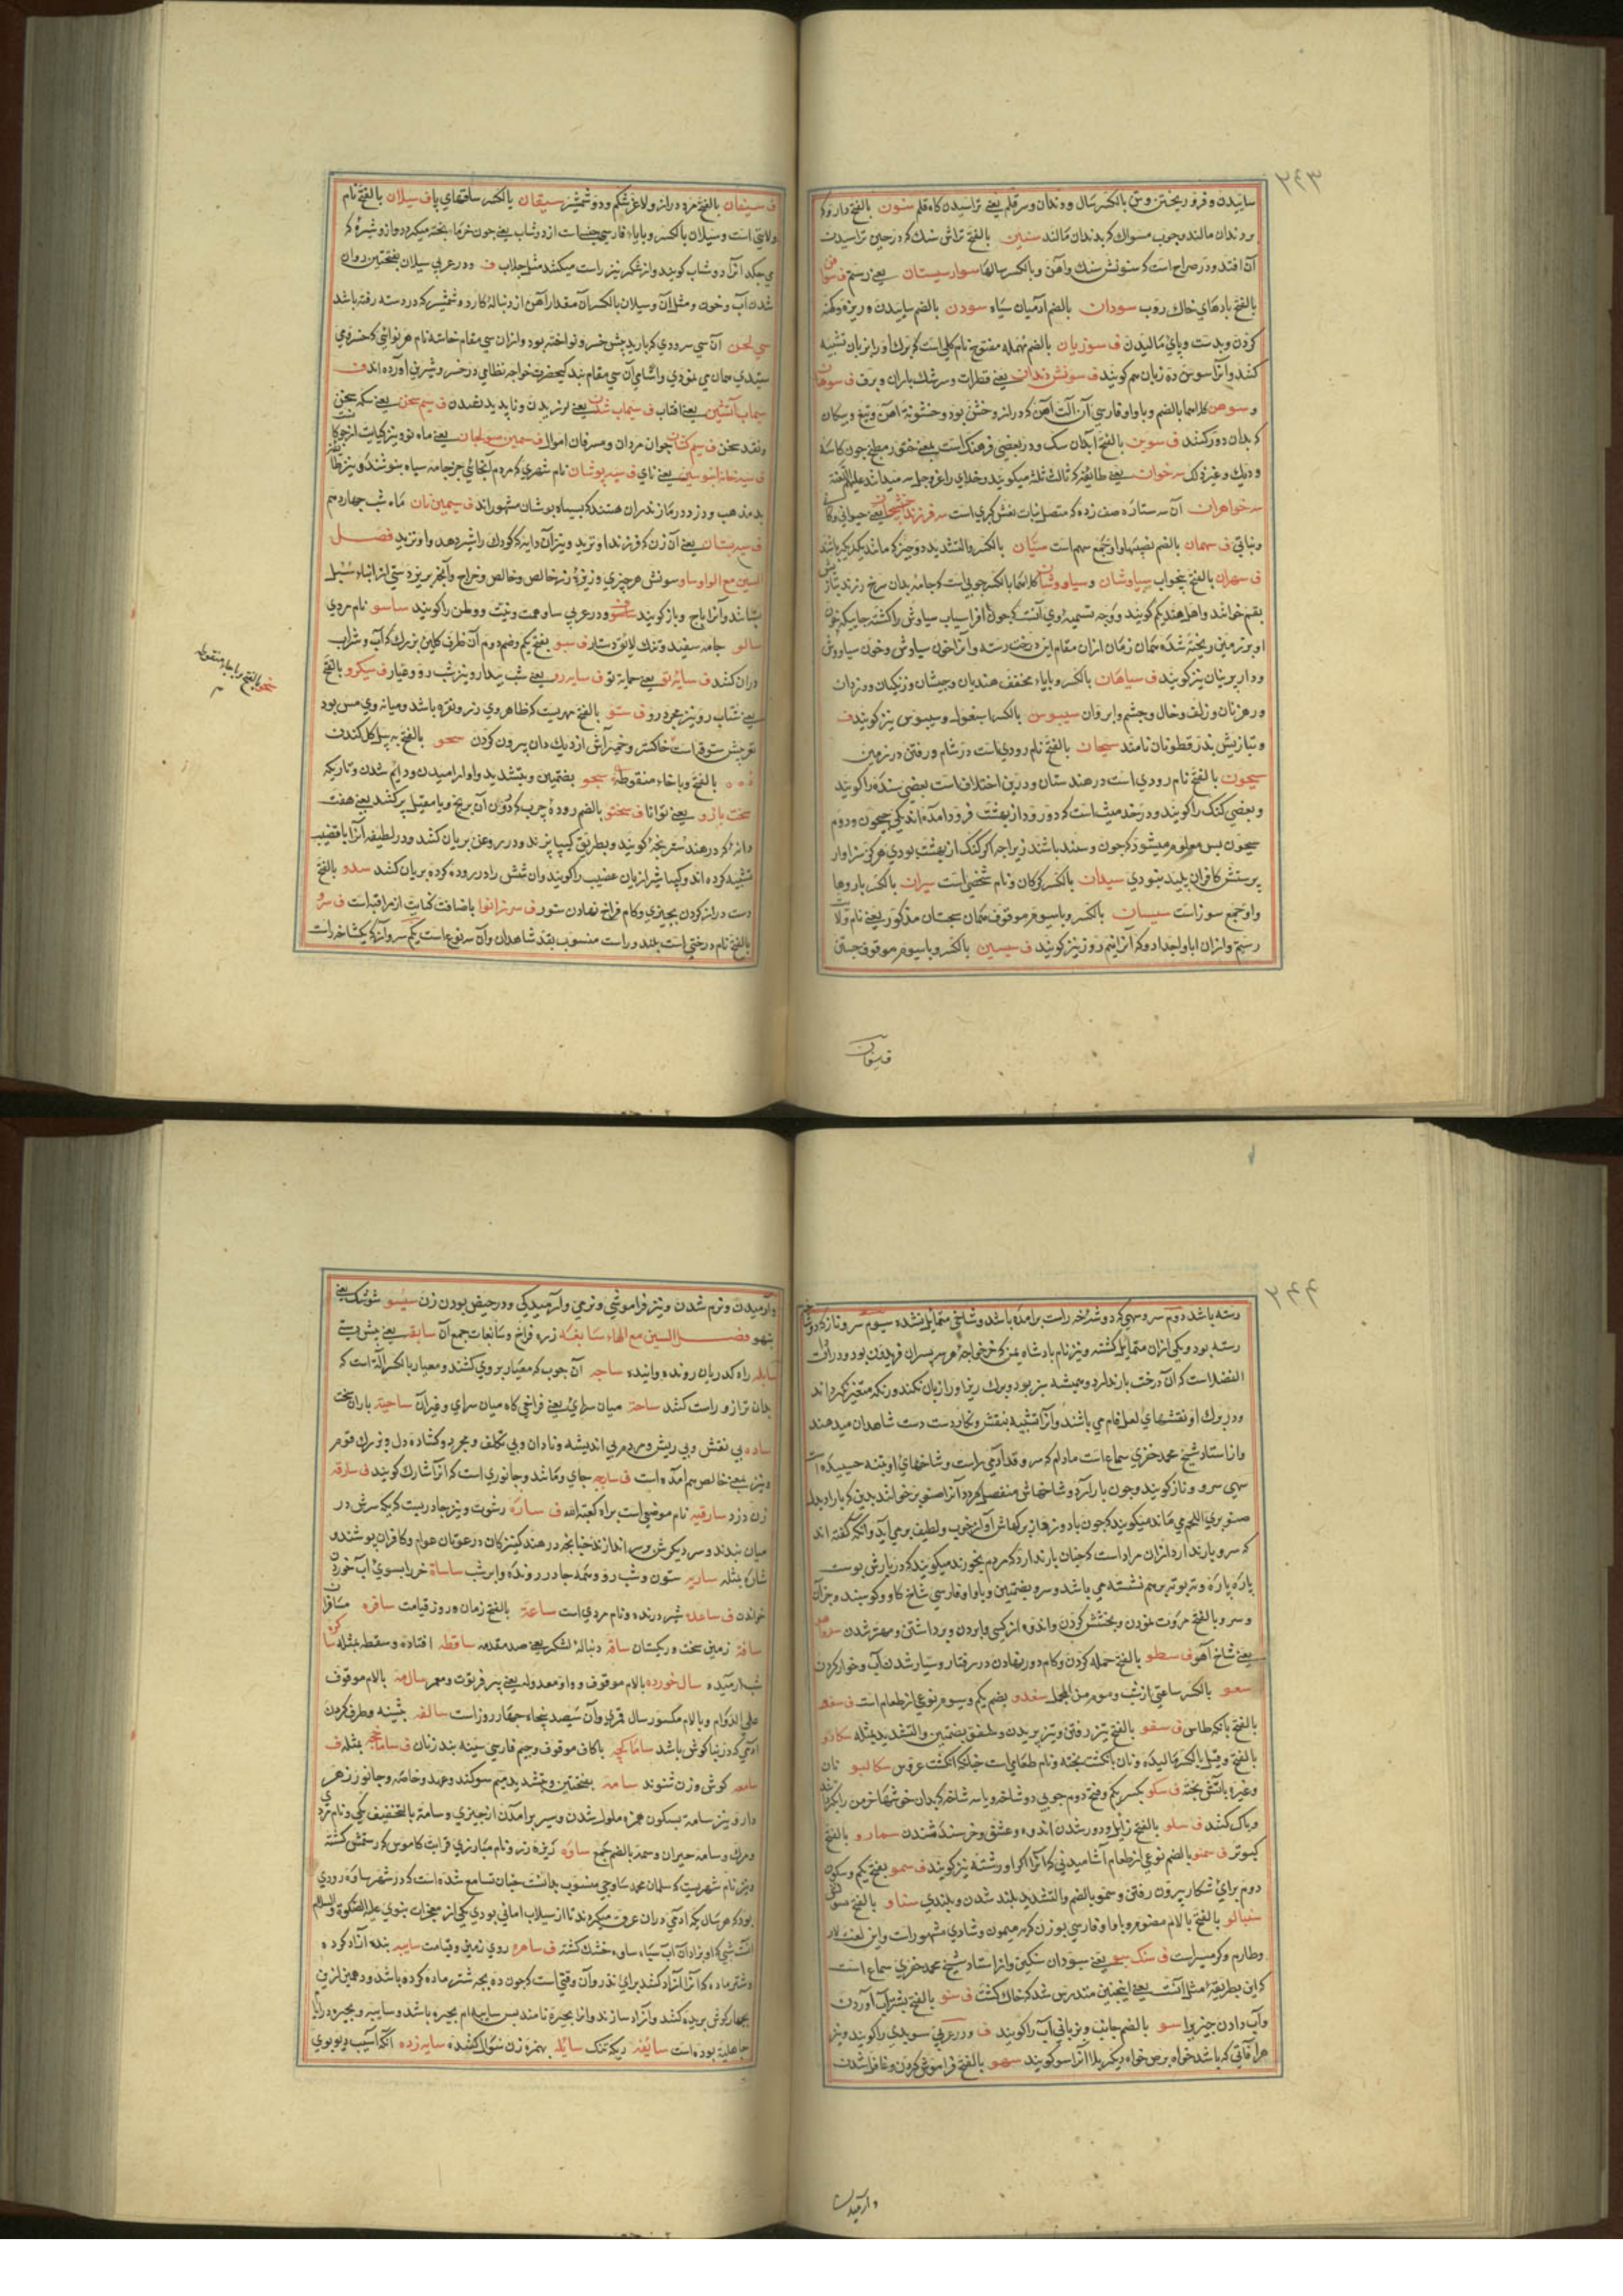 ۲۴۳
ساییدن و فرو ریختن و سن بالکسر سال و دندان و سر قلم یعنی تراشیدن کاه قلم سنون بالفتح دارو که
بر دندان مالند و چوب مسواک که بدندان مالند سنین بالفتح تراش سنک که در حین تراشیدن
آن افتد و در صراح است که سونش سنک و آهن و بالکسر سالها سوارسیستان یعنی رستم ف
بالفتح بادهای خاک روب سودان بالضم آدمیان سیاه سودن بالضم ساییدن و ریزه و کهنه
کردن و بدست و پای مالیدن ف سوزیان بالضم مهمله مفتوح نام کلی است که برک او را بزبان تشبیه
کنند و آنرا سوسن ده زبان هم کویند ف سونش دندان یعنی قطرات و سرشک باران و برف ف سوهان
و سوهن کلاهما بالضم و با واو فارسی آن آلت آهن که دراز و خشن بود و خشونة آهن و تیغ و پیکان
که بدان دور کنند ف سوین بالفتح آبدان سک و در بعضی فرهنک است یعنی خنور مطبخ چون کاسه
و دیک و غیره ذلک سه خوان یعنی طایفه که ثالث ثلثه میکویند و خدای را عز و جل سه میدانند علیهم اللعنة
سه خواهران آن سه ستاره صف زده که متصل بنات نعش کبری است سه فرزند یعنی حیوانی و کانی
و نباتی ف سهمان بالضم نصیبها و او جمع سهم است سیان بالکسر و التشدید دو چیز که مانند یکدیکر باشد
ف سهران بالفتح بیخواب سیاوشان و سیاووشان کلاهما بالکسر چوبی است که جامه بدان سرخ رنرند
بقم خوانند و اهل هند پکم کویند و وجه تسمیه وی آنست که چون افراسیاب سیاوش را کشته جاییکه خون
او بر زمین ریخته شده همان زمان ازان مقام این درخت رسته و آنرا خون سیاوش و خون سیاووش
و دارپرنیان نیز کویند ف سیاهان بالکسر و بایاء مخفف هندیان و حبشان و زنکیان و دزدان
و رهزنان و زلف و خال و چشم و ابروان سیبوس بالکسر اسبغول و سیبوس نیز کویند ف
و بتازیش بذر قطونان نامند سیحان بالفتح نام رودی است در شام و رفتن در زمین
سیحون بالفتح نام رودی است در هندستان و درین اختلاف است بعضی سنده را کویند
و بعضی کنک را کویند و در حدیث است که دو رود از بهشت فرود آمده اند یکی جیحون و دوم
سیحون پس معلوم میشود که جون و سند باشند زیراچه اکر کنک از بهشت بودی هرکز سزاوار
پرستش کافران پلید نبودی سیدان بالکسر کرکان و نام شخصی است سیران بالکسر باروها
و او جمع سور است سیستان بالکسر و با سیوم موقوف همان سجستان مذکور یعنی نام ولایت
رستم و ازان ابا و اجداد و کو آنرا نیم روز نیز کویند ف سیسین بالکسر و با سیوم موقوف جستن
ف سیفان بالفتح مرد دراز و لاغر شکم و دو شمشیر سیقان بالکسر ساقهای پا ف سیلان بالفتح نام
ولایتی است و سیلان بالکسر و بایاء فارسی جنسیات از دوشاب یعنی چون خرما پخته میکرد و از و شیره که
می چکد آنرا دوشاب کویند و از شکر نیز راست میکنند مثل جلاب ف و در عربی سیلان بفتحتین روان
شدن آب و خون و مثل آن و سیلان بالکسر آن مقدار آهن از دنباله کارد و شمشیر که در دسته رفته باشد
سی لحن آن سی سرودی که باربد پیش خسرو نواخته بود و ازان سی مقام خاسته نام هر نوائی که خسروی
شنیدی همان می نمودی و اسامی آن سی مقام بند کیحضرت خواجه نظامی در خسرو و شیرین آورده اند ف
سیماب آتشین یعنی آفتاب ف سیماب شدن یعنی لرزیدن و ناپدید شدن ف سیم سخن یعنی سکه سخن
و نقد سخن ف سیم کشان جوان مردان و مسرفان اموال ف سیمین صولجان یعنی ماه نو و نیز کنایت از
ف سیه خانه آبنوسین یعنی نای ف سیه پوشان نام شهری که مردم آنجائی جز جامه سیاه بنوشند و نیز
بد مذهب و دزد در مازندران هستند که بسیاه پوشان مشهور اند ف سیمین نان ماه شب چهاردهم
ف سیه پستان یعنی آن زن که فرزند او نزید و نیز آن دایه که کودک را شیر دهد و او نزید فصل
السین مع الواو ساو سونش هر چیزی و نیز زر خالص و خالص و خراج و آنچه بر یزد ستی از ابناء سبیل
بستانند و آنرا باج و باژ کویند و در عربی ساو همت و نیت و وطن را کویند ساسو نام مردی
سالو جامه سفید و تنک لایق دستار ف سبو بفتح یکم و ضم دوم آن ظرف کلین بزرک که آب و شراب
دران کنند ف سایه تو یعنی حمایه تو ف سایه رو یعنی شب بیدار و نیز شب رو و عیار ف سیکرو بالفتح
یعنی شتاب رو و نیز مجرد رو ف ستو بالفتح مهریست که ظاهر وی زر و نقره باشد و میانه وی مس بود
سحو بالفتح به بیل کل کندن
بالفتح و با خاء منقوطه سجو بضمتین و بتشدید واو آرامیدن و دایم شدن و تاریکه
سخت بازو یعنی توانا ف سختو بالضم روده چرب که درون آن برنج و با مقیل پر کنند یعنی هفت
دانه که در هند سفرنجه کویند و بطریق کیپا پزند و در روغن بریان کنند و در لطیفه آنرا با قضیب
تشبیه کرده اند و کیپا شیرازیان عصیب را کویند و ان شش را در روده کرده بریان کنند سدو بالفتح
دست دراز کردن بچیزی و کام فراخ نهادن ستور ف سر زانوا باضافت کنایت از مراقبه است ف سرو
بالفتح نام درختی است بلند و راست منسوب بقد شاهدان و آن سه نوع است یکم سرو آزاد که یکشاخ راست
بالفتح و با خاء منقوطه
ف سیفان
۲۴۴
رسته باشد دوم سرو سهی که دو شاخه راست برآمده باشد و شاخی متمایل نشده سیوم سرو ناز که دو شاخ
رسته بود و یکی ازان متمایل کشته و نیز نام بادشاه یمن که خرخواجه هر سه پسران فریدون بود و در ادات
الفضلا است که آن درخت بار ندارد و همیشه سبز بود و برک ریز او را زیان نکند و رنکه متغیر نکرداند
و در برک او نقشهای لعل فام می باشند و آنرا تشبیه بنقش و نکار دست دست شاهدان میدهند
و از استاد شیخ محمد خزری سماع است مادام که سرو قد آدمی راست و شاخهای او بتنه چسپیده است
سهی سرو و ناز کویند و چون بار آرد و شاخهاش منفصل کردد آنرا صنوبر خوانند بدین که بار او بدل
صنوبری اللحم می ماند میکویند که چون باد وزد از برکهاش آواز خوب و لطیف برمی آید و آنکه کفته اند
که سرو بار ندارد ازان مراد است که چنان بار ندارد که مردم بخورند میکویند که در بارش پوست
پاره پاره و تو بتو بر هم نشسته می باشد و سرو بضمتین و با واو فارسی شاخ کاو و کوسپند و جزان
و سرو بالفتح مروت نمودن و بخشش کردن و اندوه از کسی وا بردن و برداشتن و مهتر شدن
یعنی شاخ آهو ف سطو بالفتح حمله کردن و کام دور نهادن در رفتار و بسیار شدن آب و خوار کردن
سعو بالکسر ساعتی از شب و موم من المجمل سغدو بضم یکم و سیوم نوعی از طعام است ف سفو
بالفتح بانکه طاس ف سقو بالفتح تیز رفتن و تیز پریدن و طفق بضمتین والتشدید مثله سکارو
بالفتح و قیل بالکسر مالیده و نان بانکشت پخته و نام طعامی است سکالیو نان
و غیره باتش پخته ف سکو بکسر یکم و فتح دوم چوبی دو شاخه و یا سه شاخه که بدان خوشهاء خرمن را
و پاک کنند ف سلو بالفتح زایل و دور شدن اندوه و عشق و خرسند شدن سمارو بالفتح
کبوتر ف سمنو بالضم نوعی از طعام آشامیدنی که آنرا اکرا و رشته نیز کویند ف سمو بفتح یکم و سکون
دوم برای شکار بیرون رفتن و سمو بالضم والتشدید بلند شدن و بلندی سناو بالفتح
سنبالو بالفتح با لام مضموم و با واو فارسی بوزن کریه میمون و شادی مشهور است و این لغت لار
و طارم و کرمسیر است ف سنک سبو یعنی سبودان سنکین و از استاد شیخ محمد خزری سماع است
که این بطریقه مثل آنست یعنی اینچنین متدرس شد که خاک کشت ف سنو بالفتح بشتر آب آوردن
و آب دادن چیز را سو بالضم جانب و بزبانی آب را کویند ف و در عربی سویدی را کویند و نیز
هر آفاتی که باشد خواه برص خواه دیکر بلا آنرا سو کویند سهو بالفتح فراموش کردن و غافل شدن
و آرمیدن و نرم شدن و نیز فراموشی و نرمی و آرمیدکی و در حیض بودن زن سیسو شوشک یعنی
تیهو فصل السین مع الهاء سابغه زره فراخ و سابغات جمع آن سابقه یعنی پیش دستی
سابله راه کدریان رونده و آینده ساجه آن چوب که معیار بروی کشند و معیار بالکسر آلة است که
بدان ترازو راست کنند ساحة میان سرای یعنی فراخی کاه میان سرای و غیر آن ساحیه باران سخت
ساده بی نقش و بی ریش و مردم بی اندیشه و نادان و بی تکلف و مجرد و کشاده دل و بزرک قوم
و نیز بمعنی خالص هم آمده است ف سارجه جای و مانند و جانوری است که آنرا شارک کویند ف سارقه
زن دزد سارقیه نام موضعی است براه کعبة الله ف ساره رشوت و نیز چادریست که یکه سرش در
میان بندند و سر دیکرش بر سر اندازند چنانچه در هند کنیزکان و رعیتان عوام و کافران پوشند و
شاره مثله ساریه ستون و شب رو و همه جادر رونده و ابر شب ساساة خر را بسوی آب خوردن
خواندن ف ساعده شیر درنده و نام مردی است ساعة بالفتح زمان و روز قیامت سافره مسافران
سافه زمین سخت و ریکستان ساقه دنباله لشکر یعنی ضد مقدمه ساقطه افتاده و سقطه مثله
شب آرمیده سال خورده بالام موقوف و واو معدوله یعنی پیر فرتوت و معمر سال مه بالام موقوف
علی الدوام و بالام مکسور سال قمری و آن سیصد پنجاه چهار روز است سالفه پیشینه و طرف کردن
آدمی که در بناکوش باشد ساماکچه باکاف موقوف و جیم فارسی سینه بند زنان ف ساماخچه مثله ف
سامعه کوش و زن شنوند سامة بفتحتین و بتشدید میم سوکند و عهد و خاصه و جانور زهر
دار و نیز سامه بسکون همزه ملول شدن و سیر برآمدن از چیزی و سامة بالتخفیف یکی و نام
و مرک و سامه حیران و سمة بالضم جمع ساوه ریزه زر و نام مبارزی قرابت کاموس که رستمش کشته
و نیز نام شهریست که سلمان محمد ساوجی منسوب بدانست چنان تسامع شده است که در شهر ساوه رودی
بود که هر سال یکه آدمی دران غرق میکردند تا از سیلاب امانی بودی یکی از معجزات نبوی علیه الصلوة والسلام
آنست شبی که او بزاد آن آب سیاه ساوه خشک کشته ف ساهره روی زمین و قیامت سایبه بنده آزاد کرده
و شتر ماده که آنرا آزاد کنند برای نذر و آن وقتی است که چون ده بچه شتر ماده کرده باشد و دهمین را
بحیار کوش بریده کنند و آزاد سازند و آنرا بحیره نامند پس سایبه ام بحیره باشد و سایبه و بحیره در ایام
جاهلیة بوده است سائفه ریکه تنک سائله بهمزه زن سوال کننده سایه زده آنکه آسیب دیو و پری
و آرمیدن